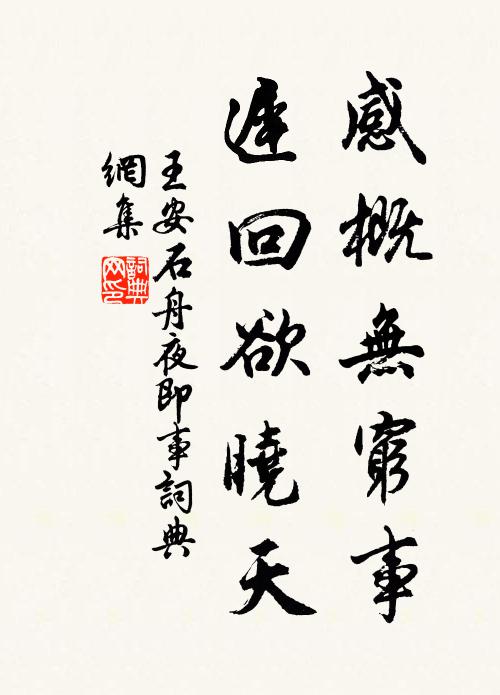 感概無窮事
遲回欲曉天
王安石舟夜即事詞典
網集
詞典網印